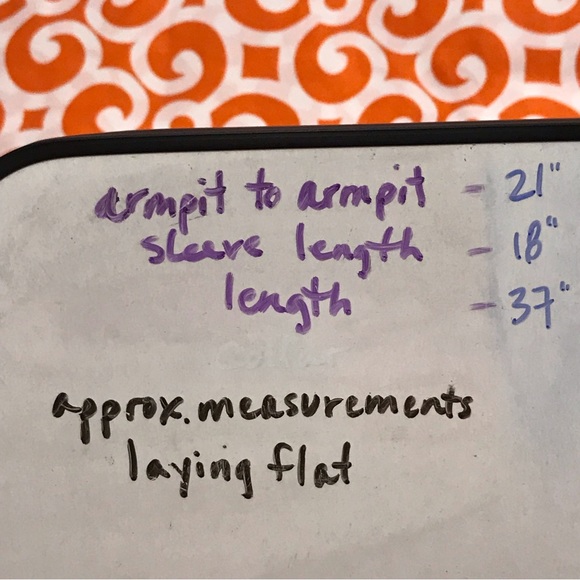 armpit to armpit - 21"
sleeve length - 18"
length - 37"
approx. measurements
laying flat